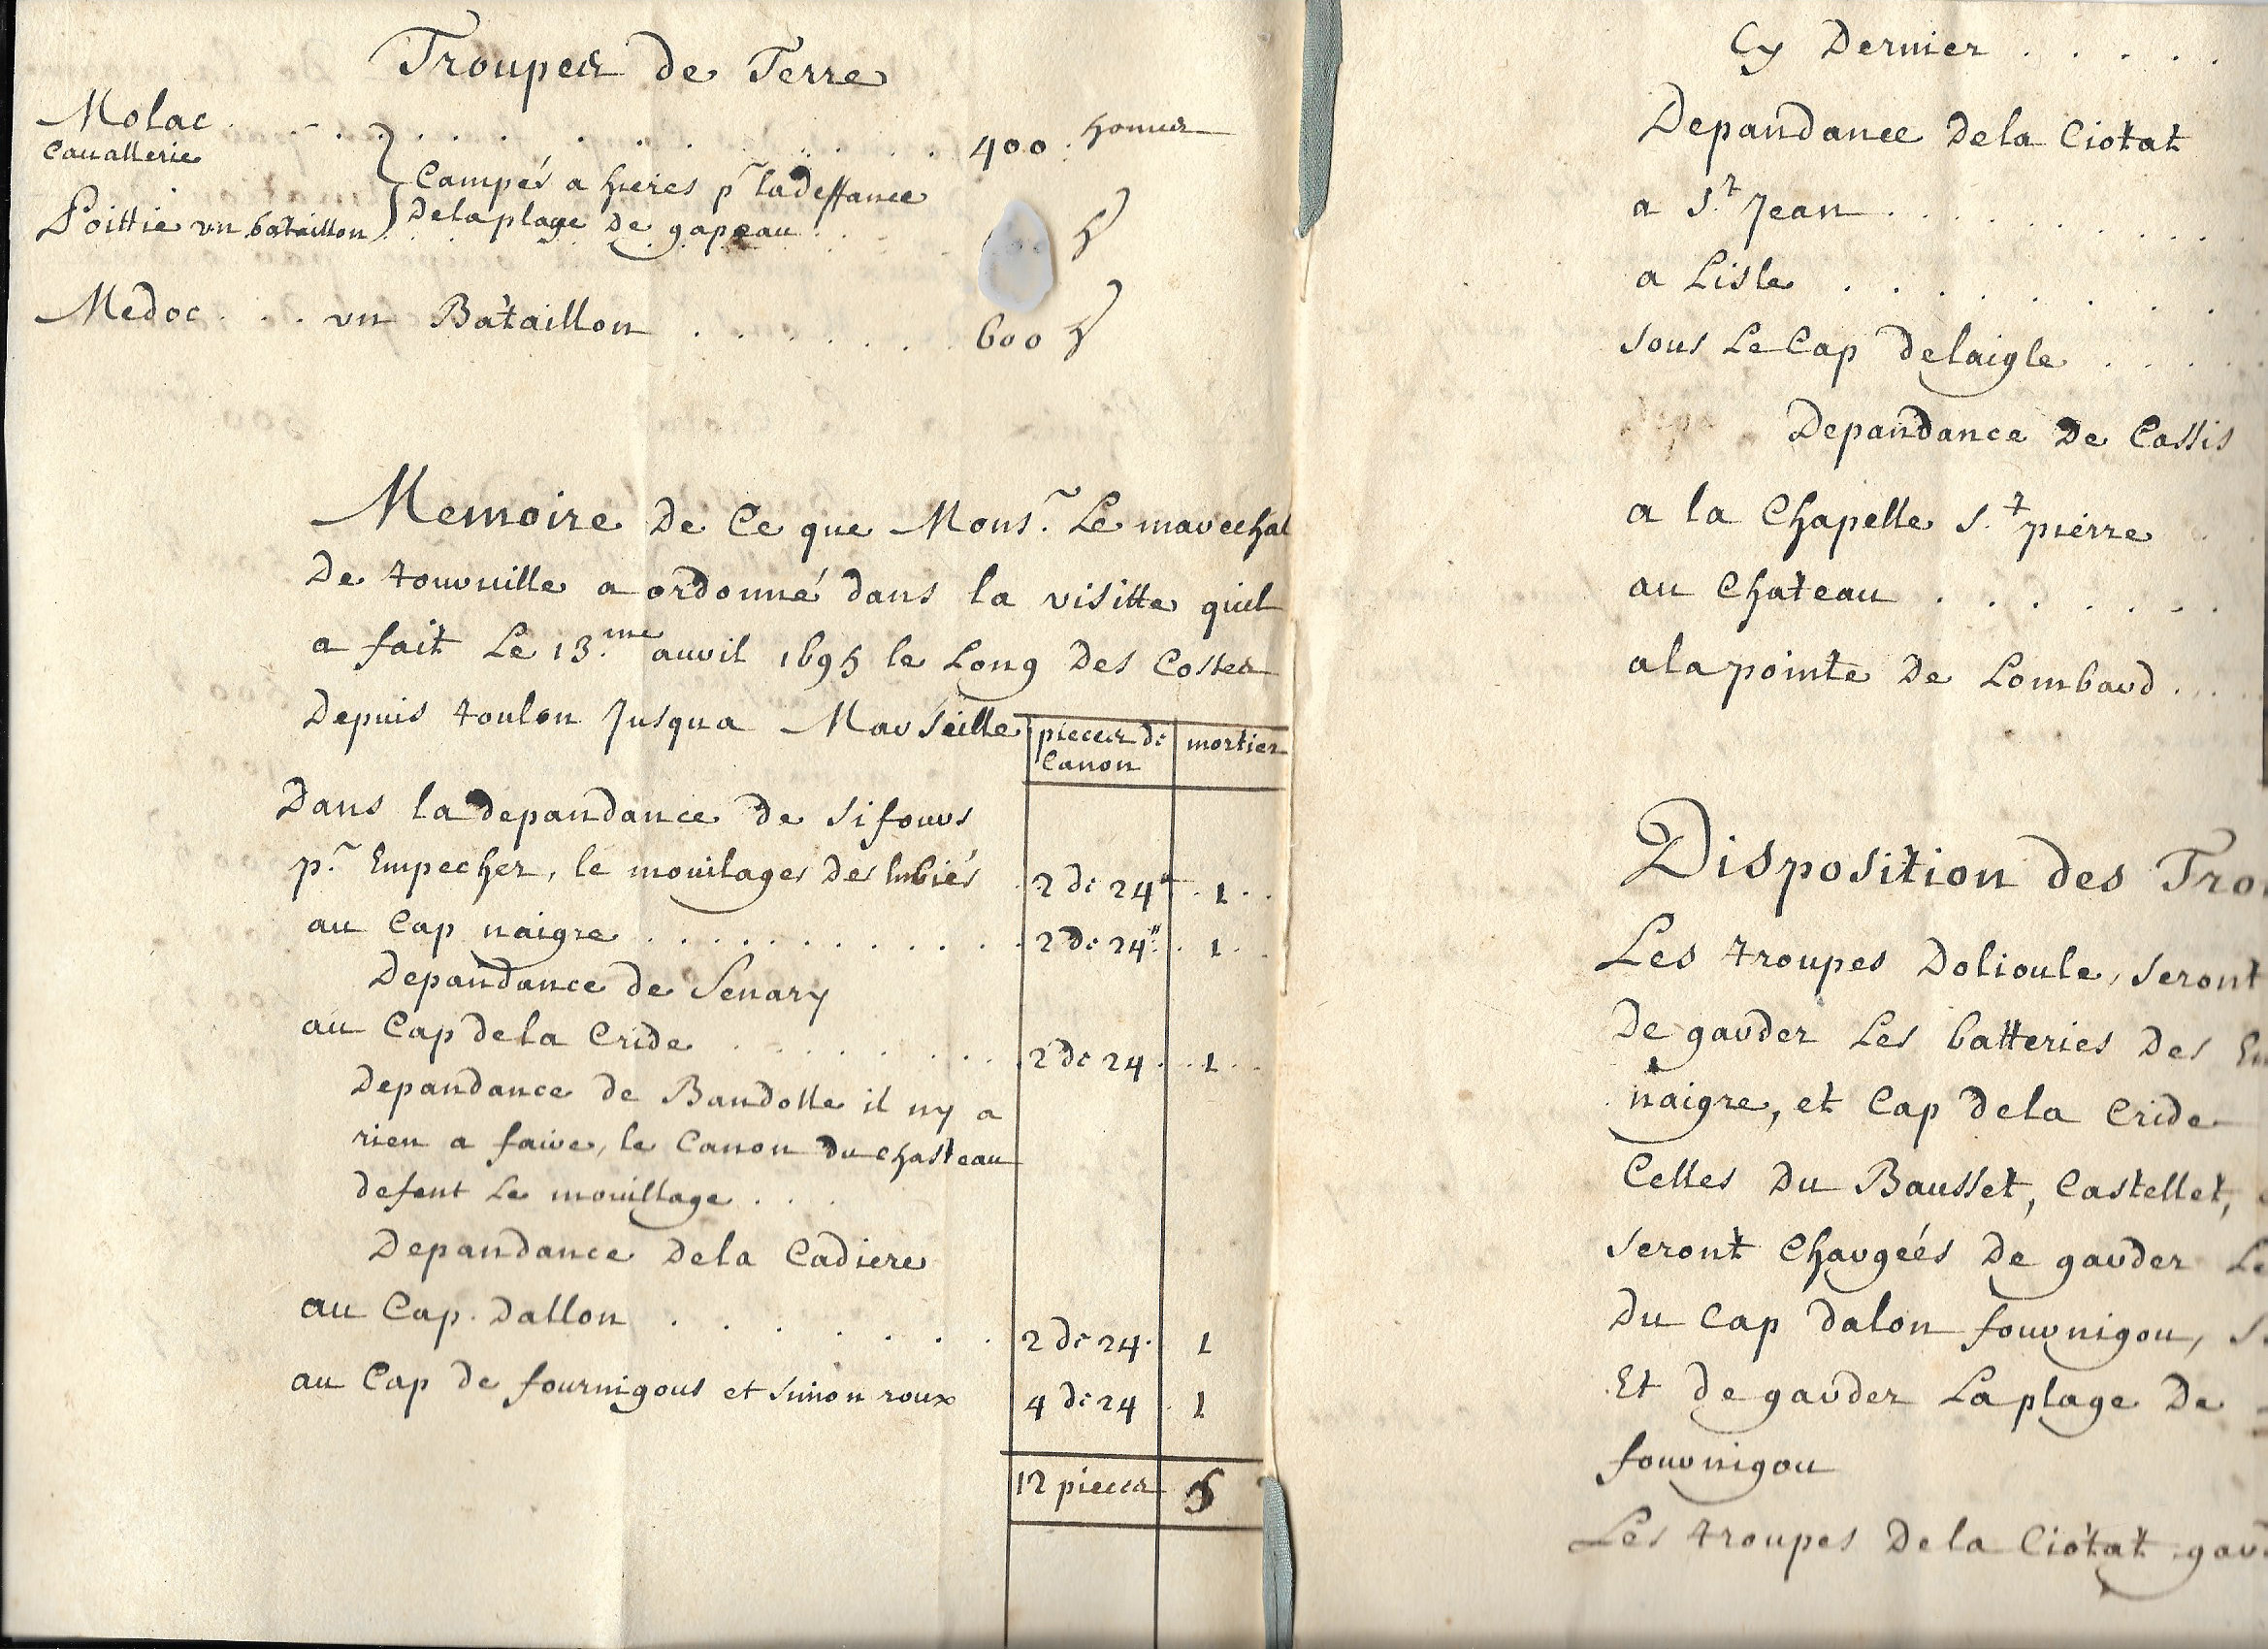 Troupes de Terre
Molac . . . . . . . . . . . . 400 . homes
Cauallerie
Campés a hieres pr ladeffance
Poittie vn bataillon delaplage De gapeau . .
Medoc . . . vn Bataillon . . . . . . . 600
Memoire De Ce que Monsr. Le marechal
De tourville a ordonné dans la visitte quil
a fait Le 13.me avril 1695 le Long Des Costes
Depuis toulon Jusqua Marseille
pieces de mortier
Canon
Dans la depandance de sifours
pr. Empecher, le mouilages Des Inbiés . 2 de 24 . 1 . .
au Cap naigre . . . . . . . . . . . . 2 de 24 . . 1 . .
Depandance de Senary
au Cap dela Cride . . . . . . . . . 2 de 24 . . 1 . .
Depandance de Bandolle il ny a
rien a faire, le Canon du chasteau
defent Le mouillage . . .
Depandance Dela Cadiere
au Cap. Dallon . . . . . . . 2 de 24 . 1
au Cap de fournigous et simon roux 4 de 24 . 1
12 pieces 5
Cy Dernier . . . . .
Depandance Dela Ciotat
a St. Jean . . . . . . . . .
a Lisle . . . . . . . . .
sous Le Cap delaigle . . . .
Depandance De Cassis
a la Chapelle St. pierre
au Chateau . . . . . . .
a la pointe De Lombard . . . .
Disposition des Trou
Les troupes Dolioule, seront
De garder Les batteries Des Em
naigre, et Cap dela Cride
Celles Du Bausset, Castellet,
seront Chargeés De garder Le
Du Cap dalon fournigou, S
Et de garder La plage De
fournigou
Les troupes Dela Ciotat gard